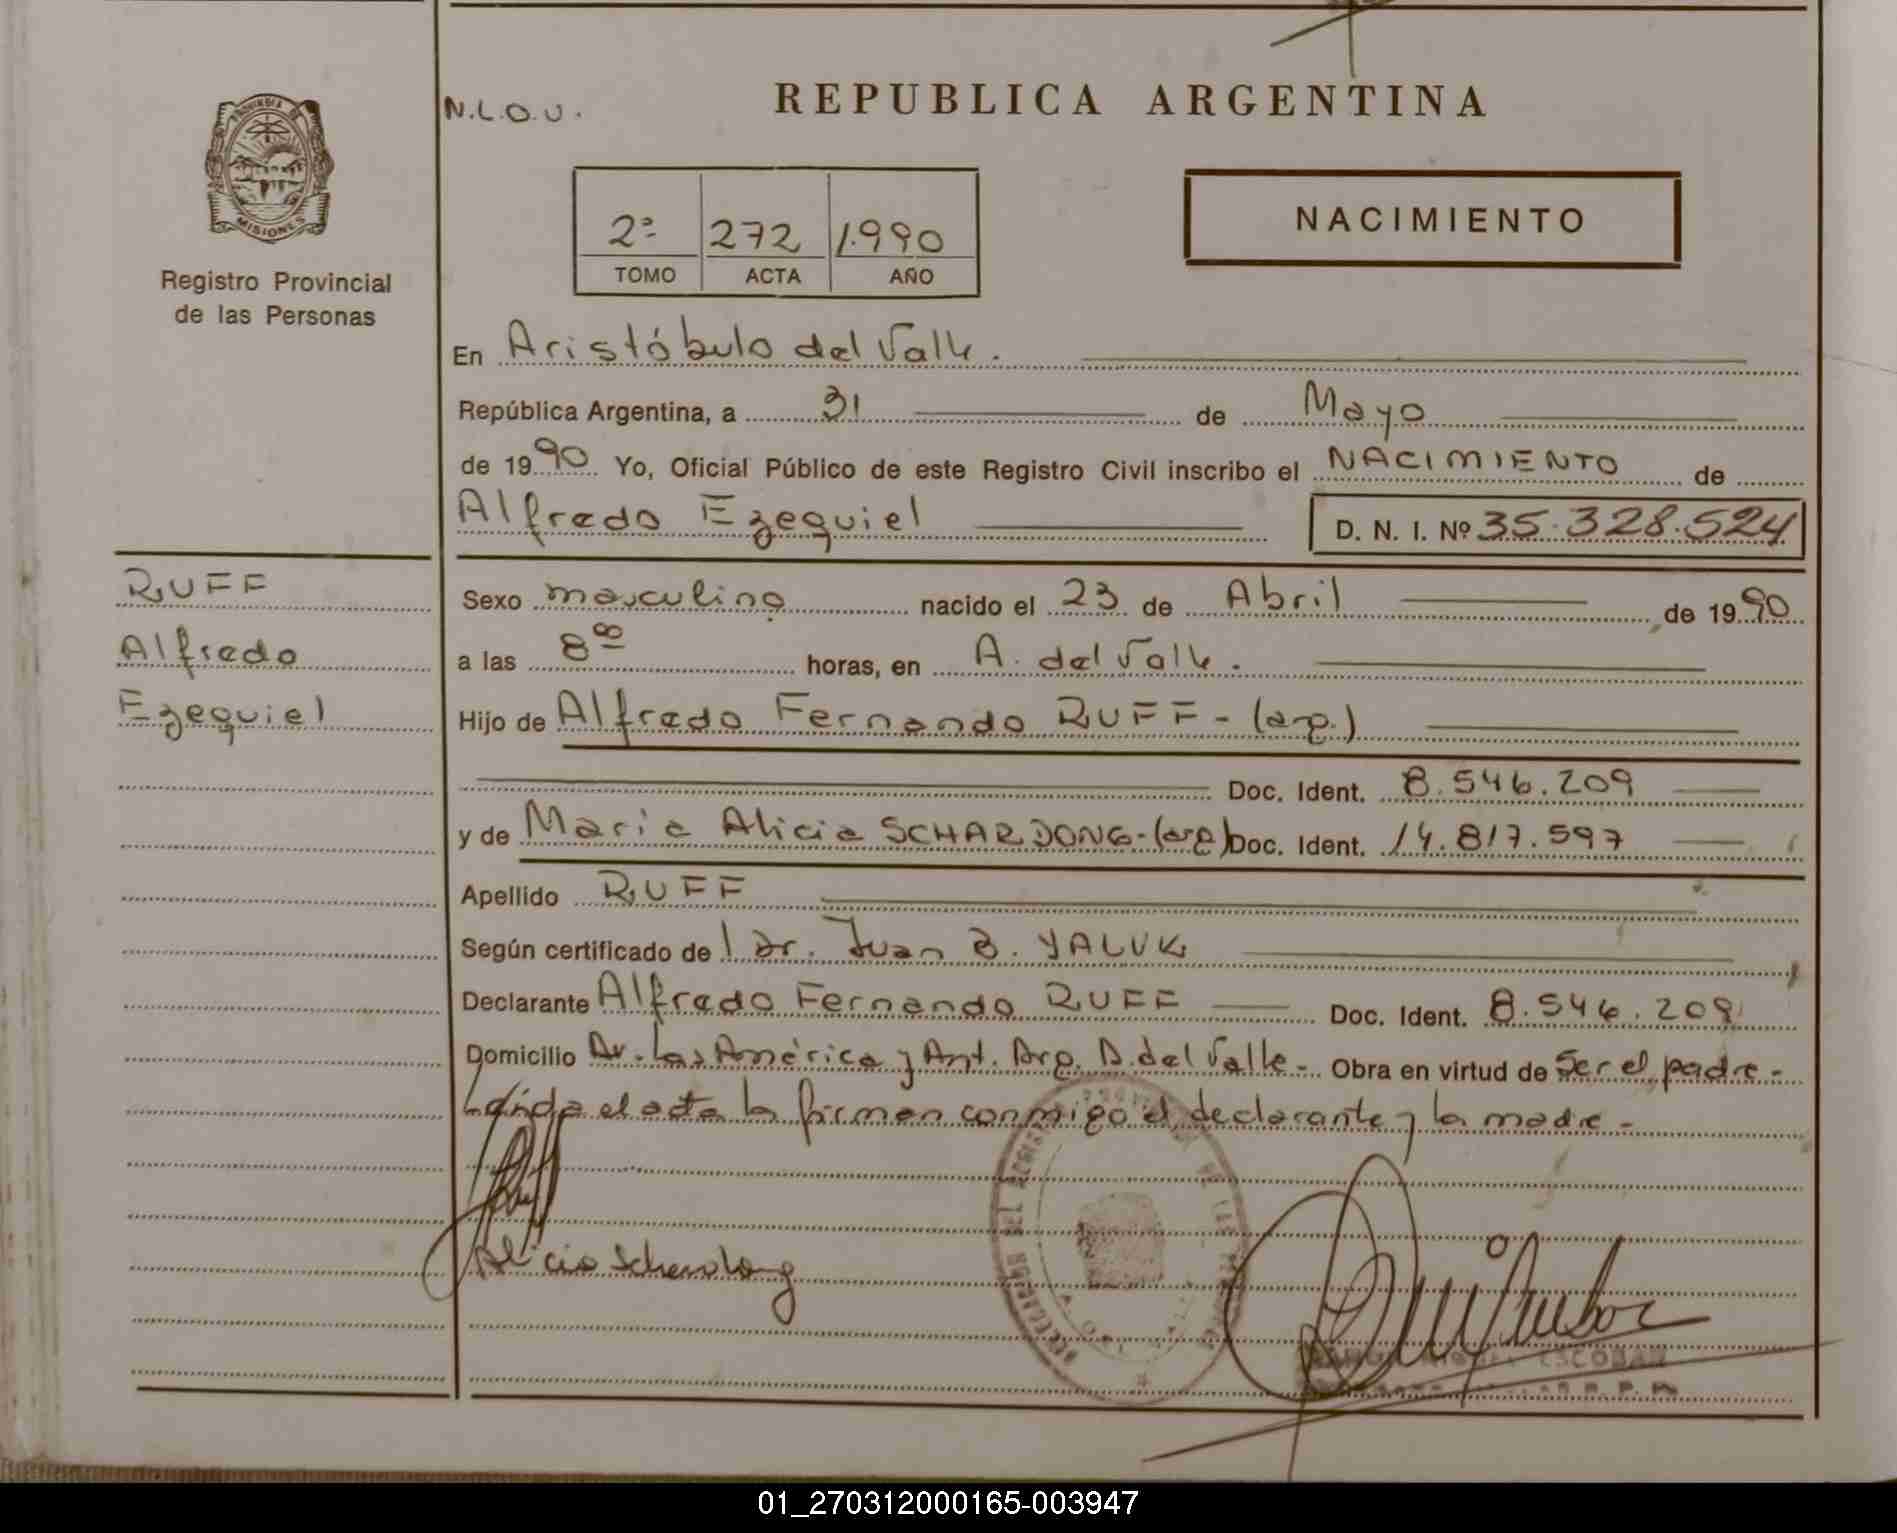 PROVINCIA DE
MISIONES
Registro Provincial
de las Personas
N.L.O.U.
REPUBLICA ARGENTINA
2ª 272 1.990
TOMO ACTA AÑO
NACIMIENTO
En Aristóbulo del Valle.
República Argentina, a 31 de Mayo
de 1990 Yo, Oficial Público de este Registro Civil inscribo el NACIMIENTO de
Alfredo Ezequiel D. N. I. Nº 35.328.524
RUFF
Alfredo
Ezequiel
Sexo masculino nacido el 23 de Abril de 1990
a las 8⁰⁰ horas, en A. del Valle.
Hijo de Alfredo Fernando RUFF - (arg.)
Doc. Ident. 8.546.209
y de Maria Alicia SCHARDONG - (arg) Doc. Ident. 14.817.597
Apellido RUFF
Según certificado de l Dr. Juan B. YALUK
Declarante Alfredo Fernando RUFF Doc. Ident. 8.546.209
Domicilio Av. Las América y Ant. Arg. A. del Valle - Obra en virtud de Ser el padre -
Leída el acta la firman conmigo el declarante y la madre -
Alicia Schardong
DELEGACION DEL REGISTRO PROVINCIAL DE LAS PERSONAS
ESCOBAR
01_270312000165-003947